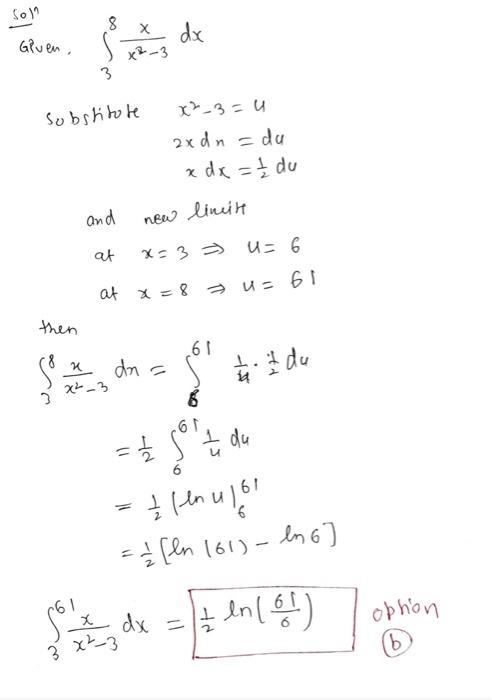 Solⁿ
Given. ∫₃⁸ x/(x²-3) dx
Substitute x²-3 = u
2x dn = du
x dx = 1/2 du
and new limits
at x = 3 ⇒ u = 6
at x = 8 ⇒ u = 61
then
∫₃⁸ x/(x²-3) dn = ∫₆⁶¹ 1/u · 1/2 du
= 1/2 ∫₆⁶¹ 1/u du
= 1/2 [ln u]₆⁶¹
= 1/2 [ln (61) - ln 6]
∫₃⁶¹ x/(x²-3) dx = 1/2 ln(61/6) option
(b)